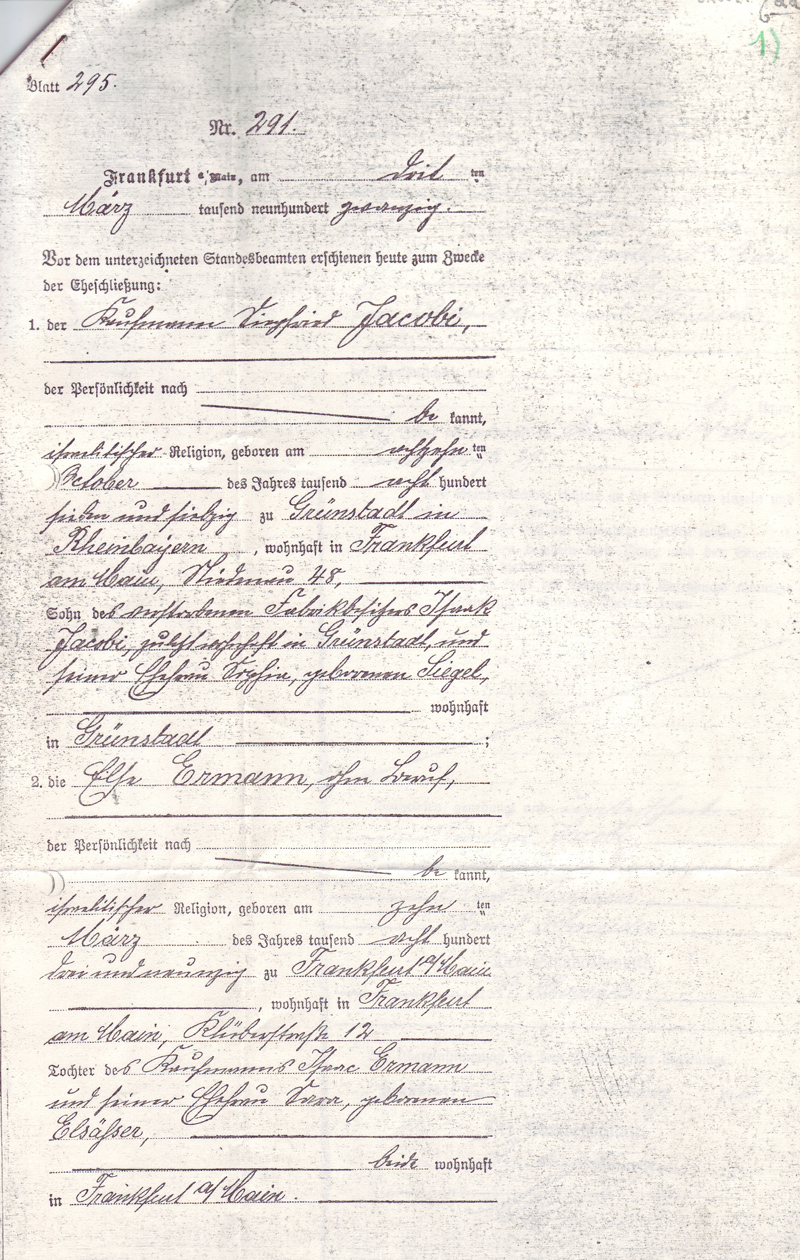 1)
Blatt 295.
Nr. 291.
Frankfurt a/Main, am drit ten
März tausend neunhundert zwanzig.
Vor dem unterzeichneten Standesbeamten erschienen heute zum Zwecke
der Eheschließung:
1. der Kaufmann Siegfried Jacobi,
der Persönlichkeit nach
be kannt,
israelitischer Religion, geboren am achtzehn ten
October des Jahres tausend acht hundert
sieben und siebzig zu Grünstadt in
Rheinbayern, wohnhaft in Frankfurt
am Main, Niedenau 48,
Sohn des verstorbenen Fabrikbesitzers Isaak
Jacobi, zuletzt wohnhaft in Grünstadt, und
seiner Ehefrau Sophie, geborenen Siegel,
wohnhaft
in Grünstadt ;
2. die Else Ermann, ohne Beruf,
der Persönlichkeit nach
be kannt,
israelitischer Religion, geboren am zehn ten
März des Jahres tausend acht hundert
drei und neunzig zu Frankfurt a/Main
, wohnhaft in Frankfurt
am Main, Klüberstraße 12
Tochter des Kaufmanns Isaac Ermann
und seiner Ehefrau Sara, geborenen
Elsässer,
beide wohnhaft
in Frankfurt a/Main.